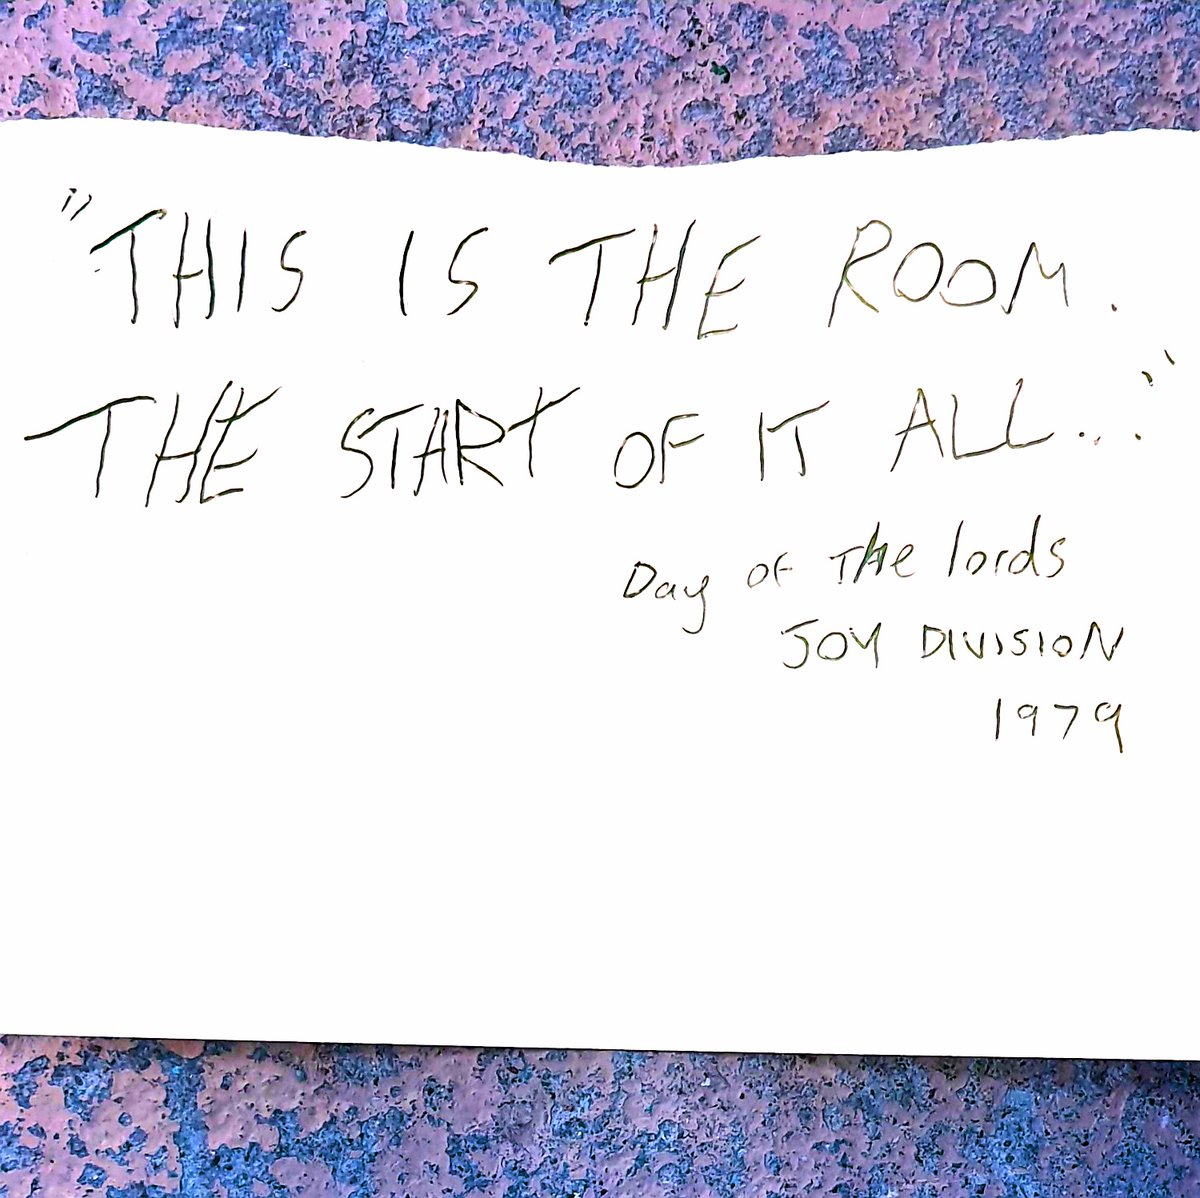 "THIS IS THE ROOM.
THE START OF IT ALL..."
Day OF THe lords
JOY DIVISION
1979